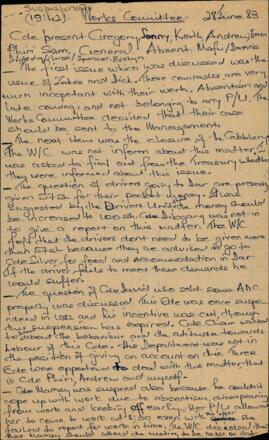 Suspensions
(19:42). Works Committee 28 June 83
Cde present Gregory, Sonny, Keith, Andrew,
Phiri Sam, General Absent Mafu, Dennis
Spencer, Evelyn
The first issue which was discussed was the
issue of Jakes and Dick. These comrades are very
much incopetant with their work. Absentism and
late coming, and not belonging to any P/U. The
Works Committee decided that their case
should be sent to the Management.
The next item was the closure of the Cobblery
The W/C was not inform about this matter. I
was asked to find out from the Treasury whether
they were informed about this issue.
The question of drivers going to Dar are presently
given 57sh for their pocket money. It was
suggested by the Drivers Unit the money should
be increased to 100sh. Cde Digaqu was not in
to give a report on this matter. The W/C
felt that the drivers dont need to be given more
than 57sh because they are advised to go to
Cde Silver for food and accommodation in Dar.
If the driver fails to meet these demands he
would suffer.
The question of Cde David who sold some ANC
property was discussed. This Cde was once suspen
ded in 1982 and his incentive was cut, though
this suspension has expired. Cde Chair called
us about the behaviour and the attitude towards
Labour of this Cde. The Department was not in
the position of giving an account on due. Three
Cde were appointed to deal with this matter that
is Cde Phiri, Andrew and myself.
Cde Mamsy was suspend also because he couldnt
cope up with work due to absentism, disappearing
from work and knocking off early. Her P/U allowed
her to come to work at 8:30 except with
failed to report for work in time. The W/C decided that
that Mamsy should attend